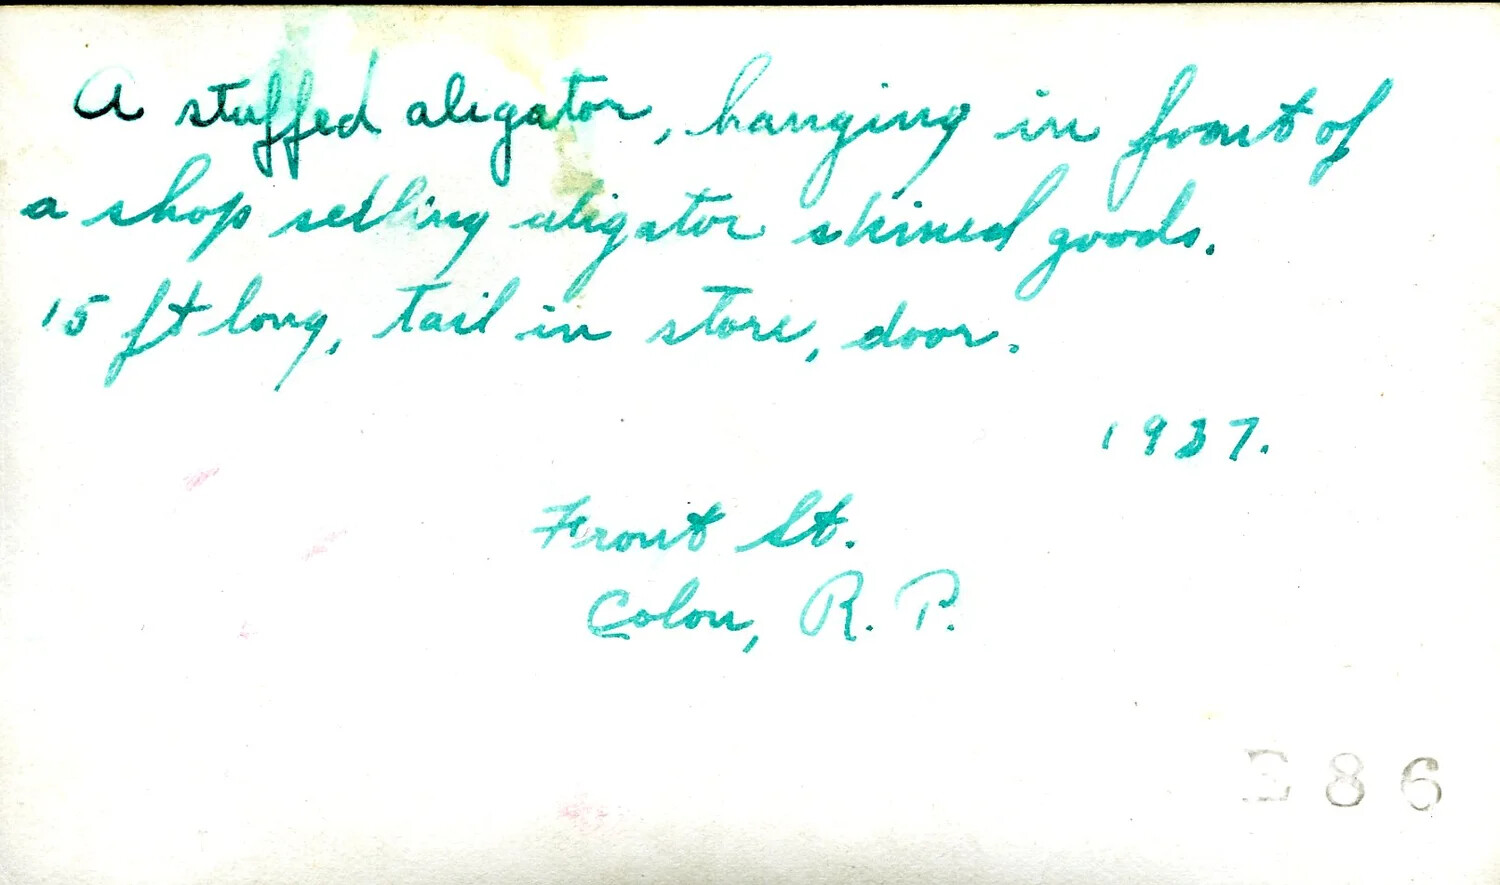 A stuffed aligator, hanging in front of
a shop selling aligator skined goods.
15 ft long, tail in store, door.
1937.
Front St.
Colon, R. P.
E86